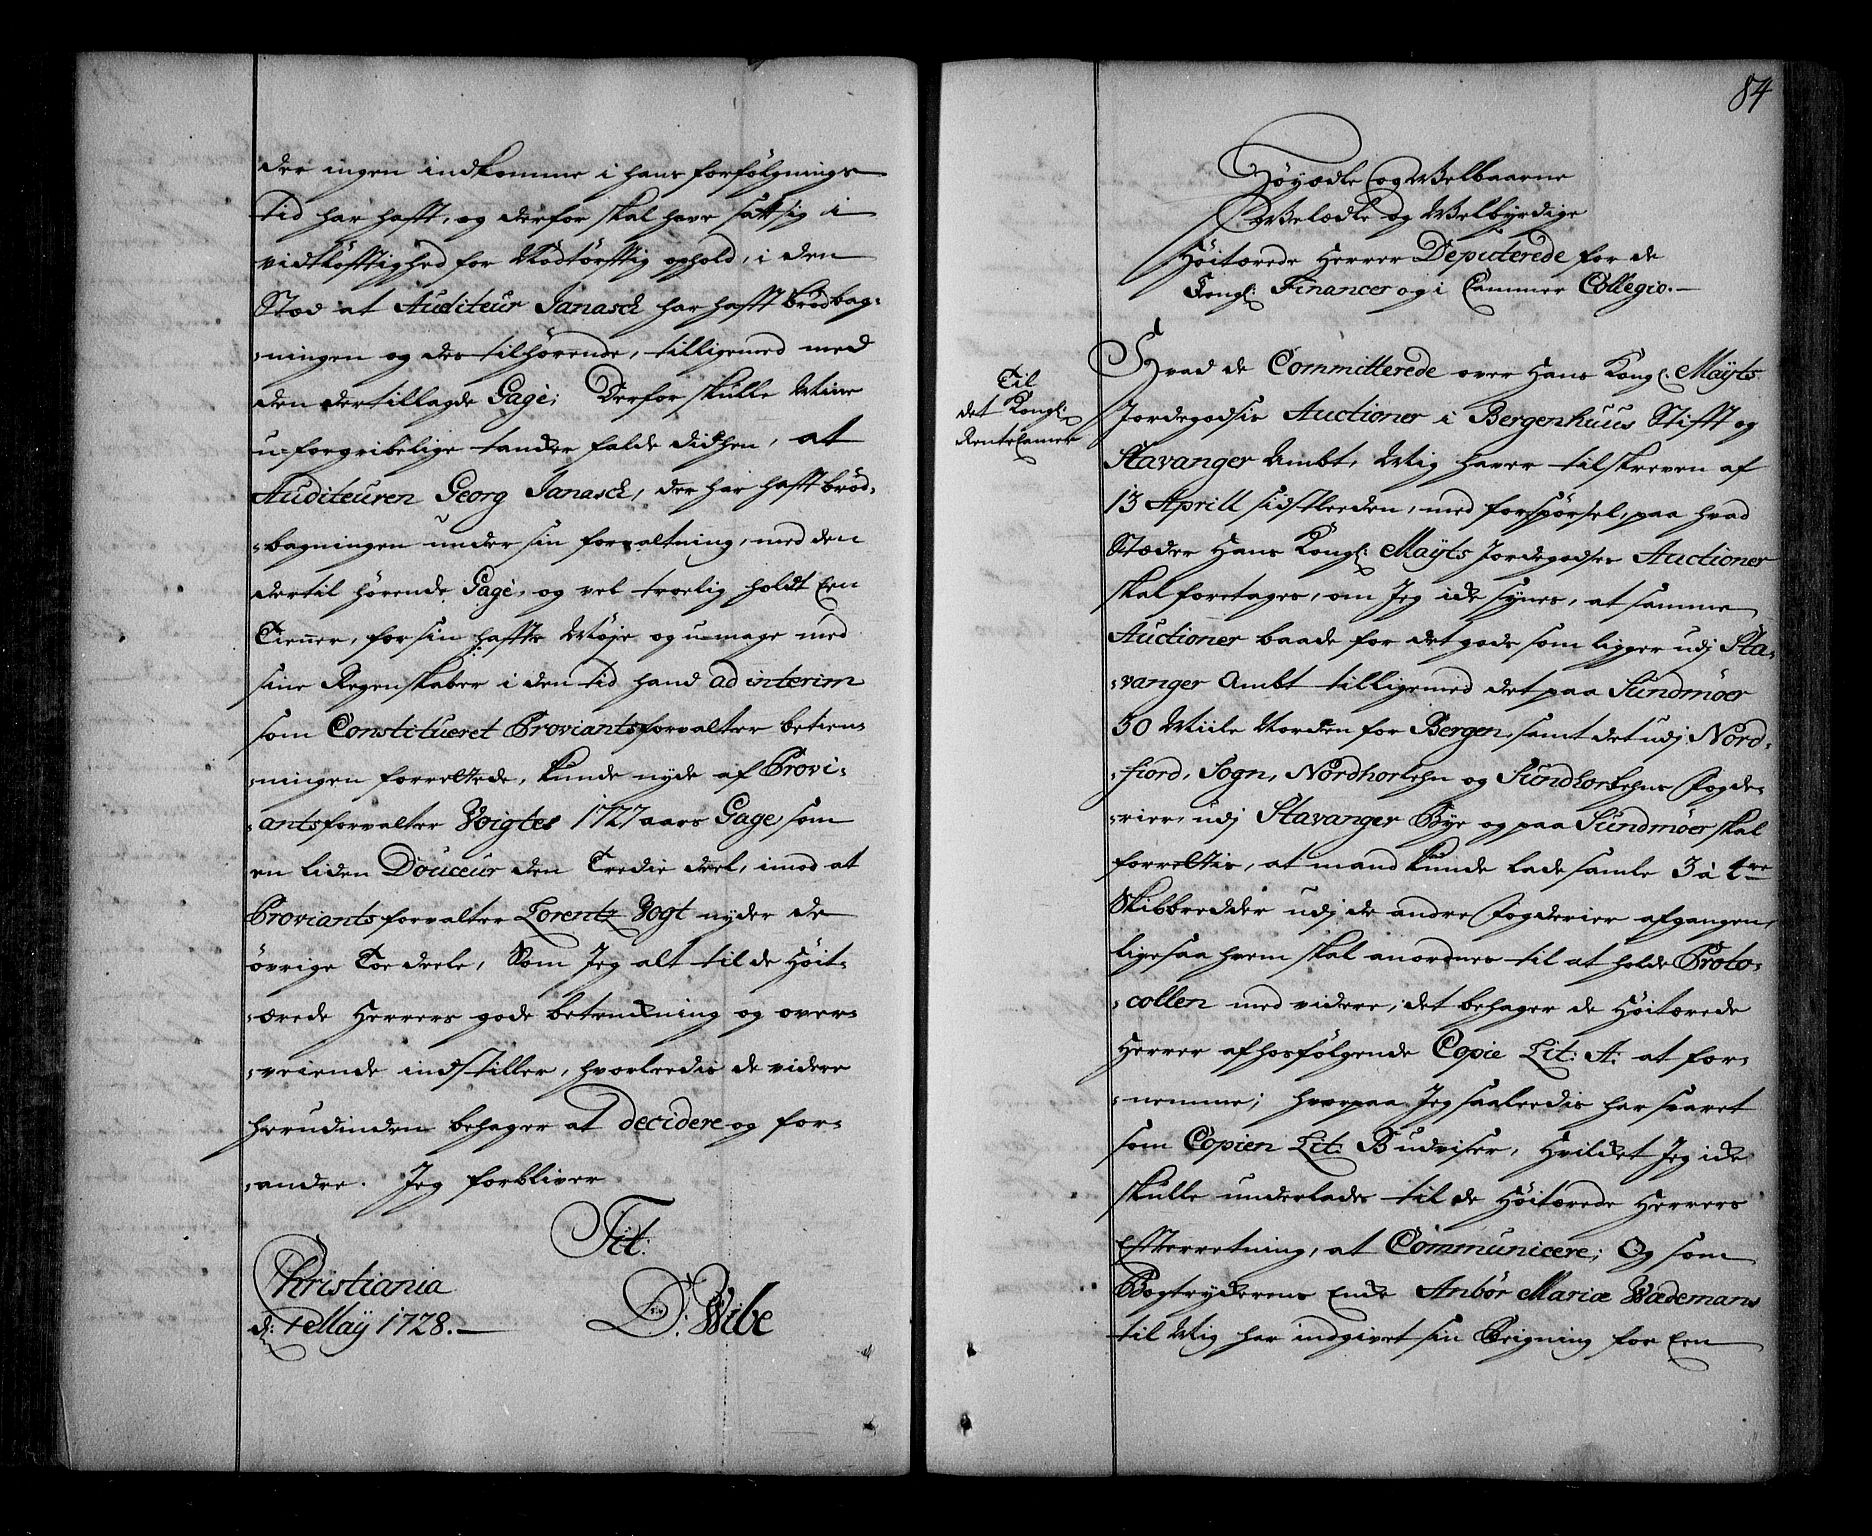 der ingen indkomme i hans forfølgnings
tid har hafft, og derfor skal have satt sig i
vidtløfftighed for Nødtørfftig ophold, i den
Stæd at Auditeur Janasch har hafft brødbag-
-ningen og des tilhørende, tilligemed med
den dertillagde Gage; Derfor skulle Mine
u-forgribelige tancker falde didhen, at
Auditeuren Georg Janasch, der har hafft brød-
-bagningen under sin forvaltning, med den
dertil hørende Gage, og vel troelig holdt Een
Tiener, for sin haffte Møje og u-mage med
sine Regenskaber i den tid hand ad interim
som Constitueret Proviantsforvalter betien-
-ningen forrettede, kunde nyde af Provi-
antsforvalter Voigtes 1727 aars Gage som
en liden Douceur den Tredie deel, imod at
Proviantsforvalter Lorentz Vogt nyder de
øvrige Toe deele, Som Jeg alt til de Høit-
-ærede Herrers gode betenckning og over-
-veiende indstiller, hvorleedis de videre
herudinden behager at decidere og for-
-andre. Jeg forbliver
Tit:
Christiania
d: 1 Maÿ 1728.
D: Wibe
84
Høyædle og Welbaarne
Welædle og Welbyrdige
Høitærede Herrer Deputerede for de
Kongl: Financer og i Cammer Collegio.
Til
det Kongl:
Rentecamer
Hvad de Committerede over Hans Kongl. Mayts
Jordegodsis Auctioner i Bergenhuus Stifft og
Stavanger Ambt, Mig haver tilskreven af
13 Aprill sidstleeden, med forspørsel, paa hvad
Stæder Hans Kongl: Mayts Jordegodses Auctioner
skal foretages, om Jeg icke synes, at samme
Auctioner baade for det gods som ligger udj Sta-
-vanger Ambt tilligemed det paa Sundmøer
30 Miile Norden for Bergen, samt det udj Nord-
-fiord, Sogn, Nordhorlehn og Sundhorlehns Fogde-
-rier, udj Stavanger Bye og paa Sundmøer skal
forrettis, at mand kunde lade samle 3 à 4re
Skibbredder udj de andre Fogderier afgangen,
ligesaa hvem skal anordnes til at holde Proto-
-collen med videre, det behager de Høitærede
Herrer af hosfølgende Copie Lit: A: at for-
-nemme; hvorpaa Jeg saaleedis har svaret
som Copien Lit: B udviser, Hvildet Jeg icke
skulle underlades til de Høitærede Herrers
Efterretning, at Communicere; Og som
Bogtryckerens Encke Anbør Mariæ Wædemans
til Mig har indgivet sin Reigning for Een